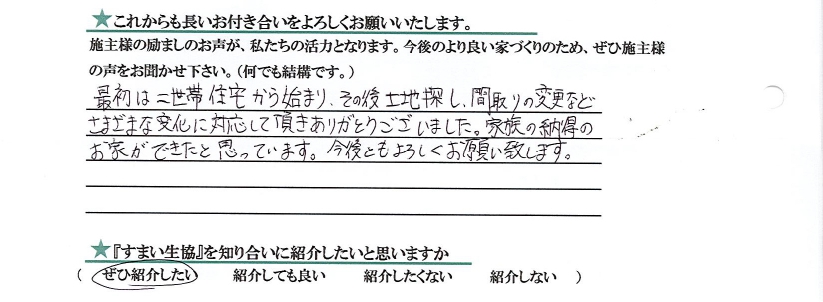 ★これからも長いお付き合いをよろしくお願いいたします。
施主様の励ましのお声が、私たちの活力となります。今後のより良い家づくりのため、ぜひ施主様
の声をお聞かせ下さい。（何でも結構です。）
最初は二世帯住宅から始まり、その後土地探し、間取りの変更など
さまざまな変化に対応して頂きありがとうございました。家族の納得の
お家ができたと思っています。今後ともよろしくお願い致します。
★『すまい生協』を知り合いに紹介したいと思いますか
（ ぜひ紹介したい 紹介しても良い 紹介したくない 紹介しない ）